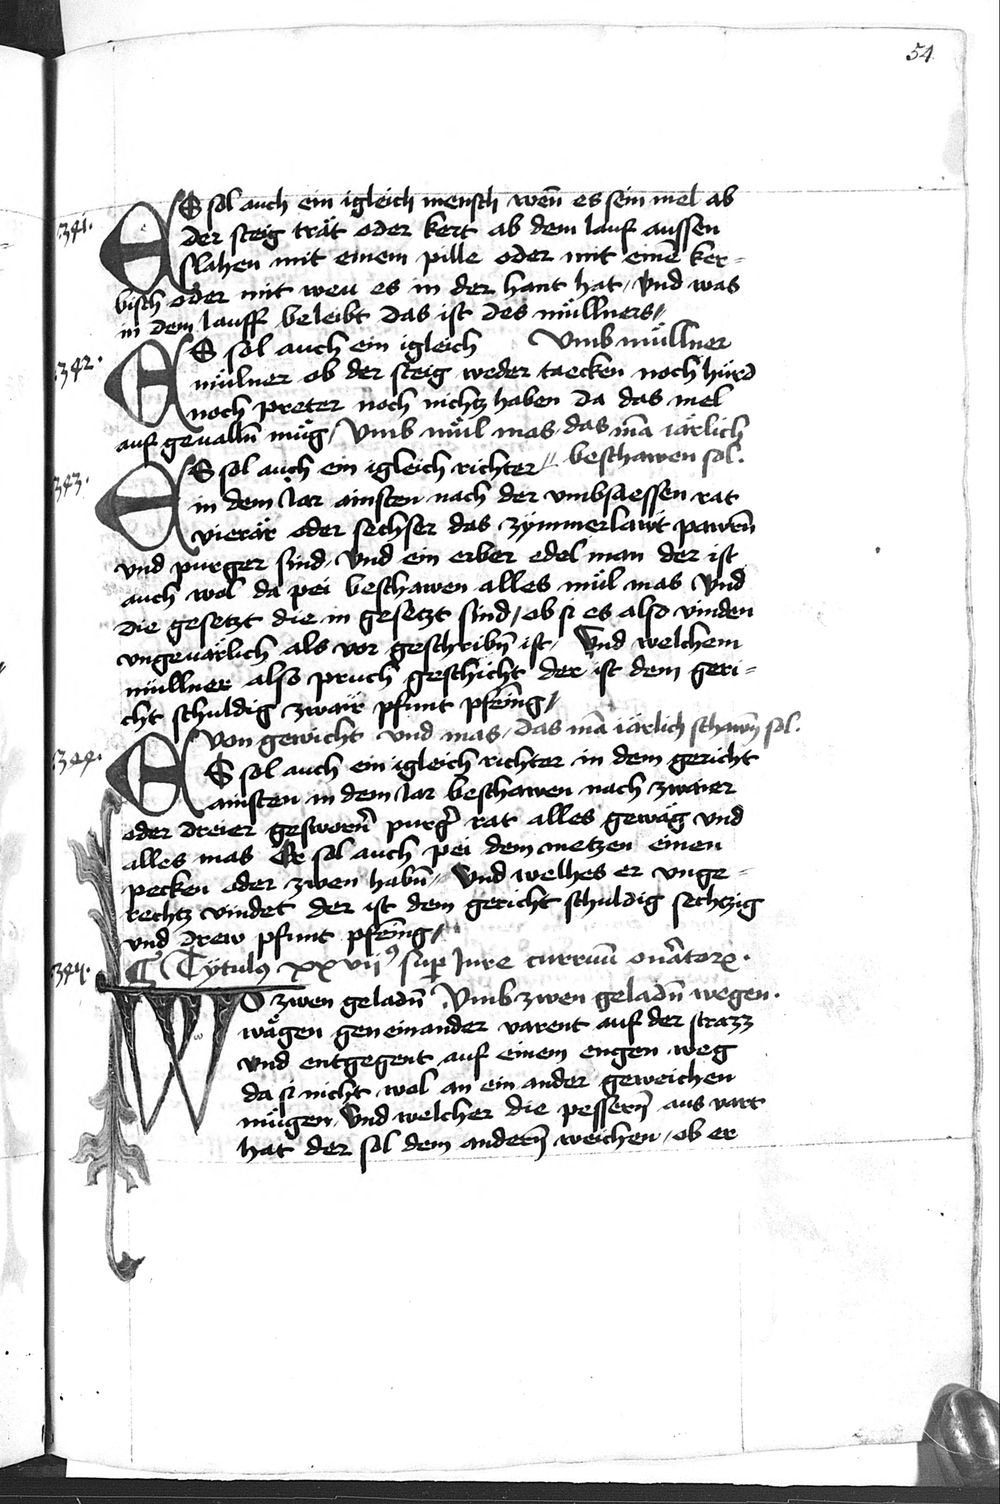 54
341. ES sol auch ein igleich mensch wen̄ es sein mel ab
der steig trät oder kert ab dem lauf aussen
slahen mit einem pille oder mit einē ker-
bisch oder mit weu es in der hant hat / Und was
in dem lauff beleibt das ist des müllners /
342. ES sol auch ein igleich Umb müllner
mülner ob der steig weder taecken noch hürd
noch preter noch nichtz haben da das mel
auf geuallen̄ müg / Umb mül mas, das mā iärlich
beschawen sol.
343. ES sol auch ein igleich richter /
in dem Jar ainsten nach der vmbsaessen rat
vierär oder sechser das zÿmmerlawt pawrn̄
vnd purger sind, Und ein erber edel man der ist
auch wol da pei beschawen alles mül mas Und
die gesetzt die in gesetzt sind / ob si es also vinden
vngeuärlich als vor geschribn̄ ist / Und welchem
müllner also pruch geschicht der ist dem geri-
cht schuldig zwair pfunt pfen̄ing /
Von gewicht vnd mas, das mā iärlich schawn̄ sol.
344. ES sol auch ein igleich richter in dem gericht
ainsten in dem Jar beschawen nach zwaier
oder dreier gesworn̄ purg̉ rat alles gewäg vnd
alles mas Er sol auch pei dem metzen einen
pecken oder zwen habn̄ / Und welhes er vnge-
rechtz vindet der ist dem gericht schuldig sechtzig
vnd drew pfunt pfen̄ing /
345. ¶ Tÿtulꝰ xxvijꝰ sup̄ Jure curruū on̉atorꝝ.
WO zwen geladn̄ Umb zwen geladn̄ wegen.
wägen gen einander varent auf der strazz
vnd entgegent auf einem engen weg
da si nicht wol an ein ander geweichen
mügen, Und welcher die pessern̄ aus vart
hat der sol dem andern̄ weichen, ob er